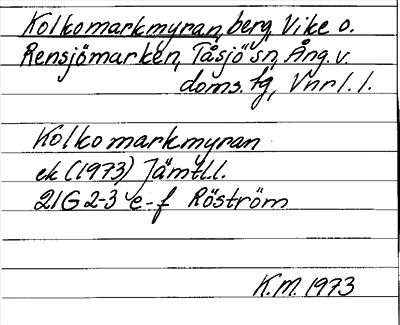 Kolkomarkmyran, berg, Vike o.
Rensjömarken, Tåsjö sn, Ång. v.
doms. tg, Vnrl. l.
Kolkomarkmyran
ek (1973) Jämtl. l.
21G 2-3 e-f Röström
K.M. 1973